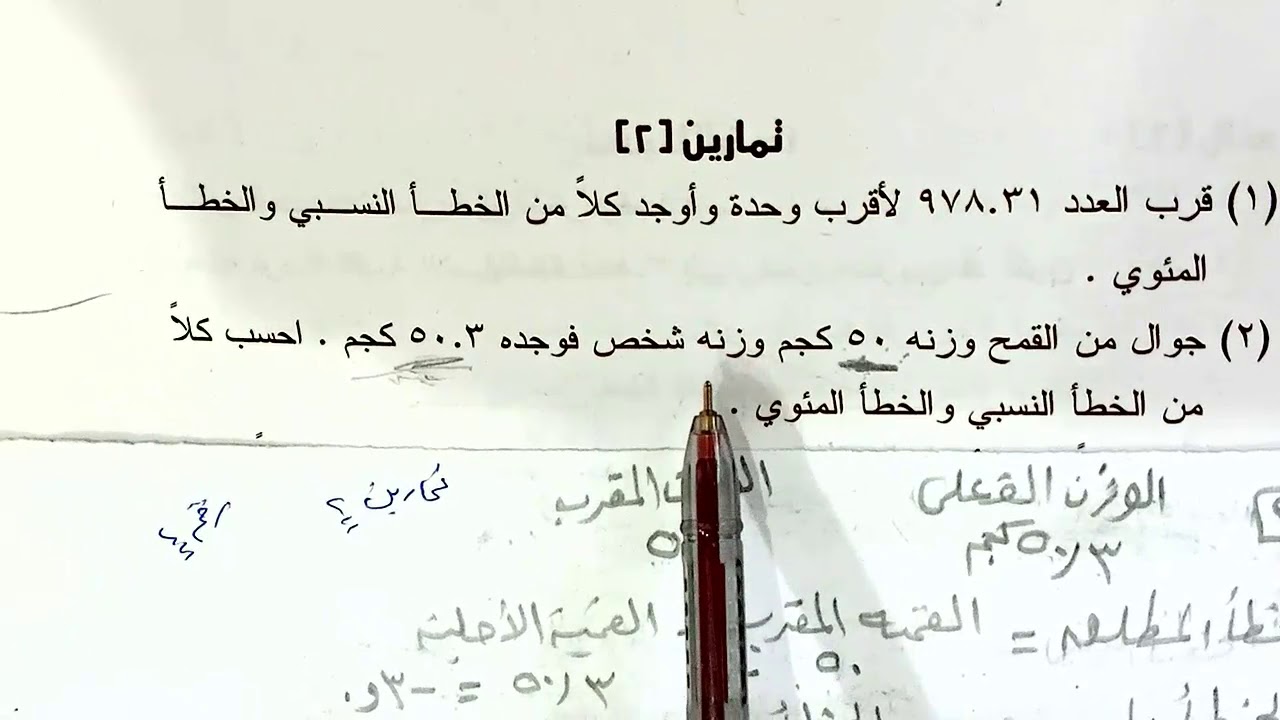 تمارين [٢]
(١) قرب العدد ٩٧٨.٣١ لأقرب وحدة وأوجد كلاً من الخطأ النسبي والخطأ
المئوي .
(٢) جوال من القمح وزنه ٥٠ كجم وزنه شخص فوجده ٥٠.٣ كجم . احسب كلاً
من الخطأ النسبي والخطأ المئوي .
الوزن الفعلي المقرب
٥٠٫٣ كجم
تمارين ٢
= القيمه المقرب - القيمة الأصلية
٥٠ ٥٠٫٣ = -٠٫٣